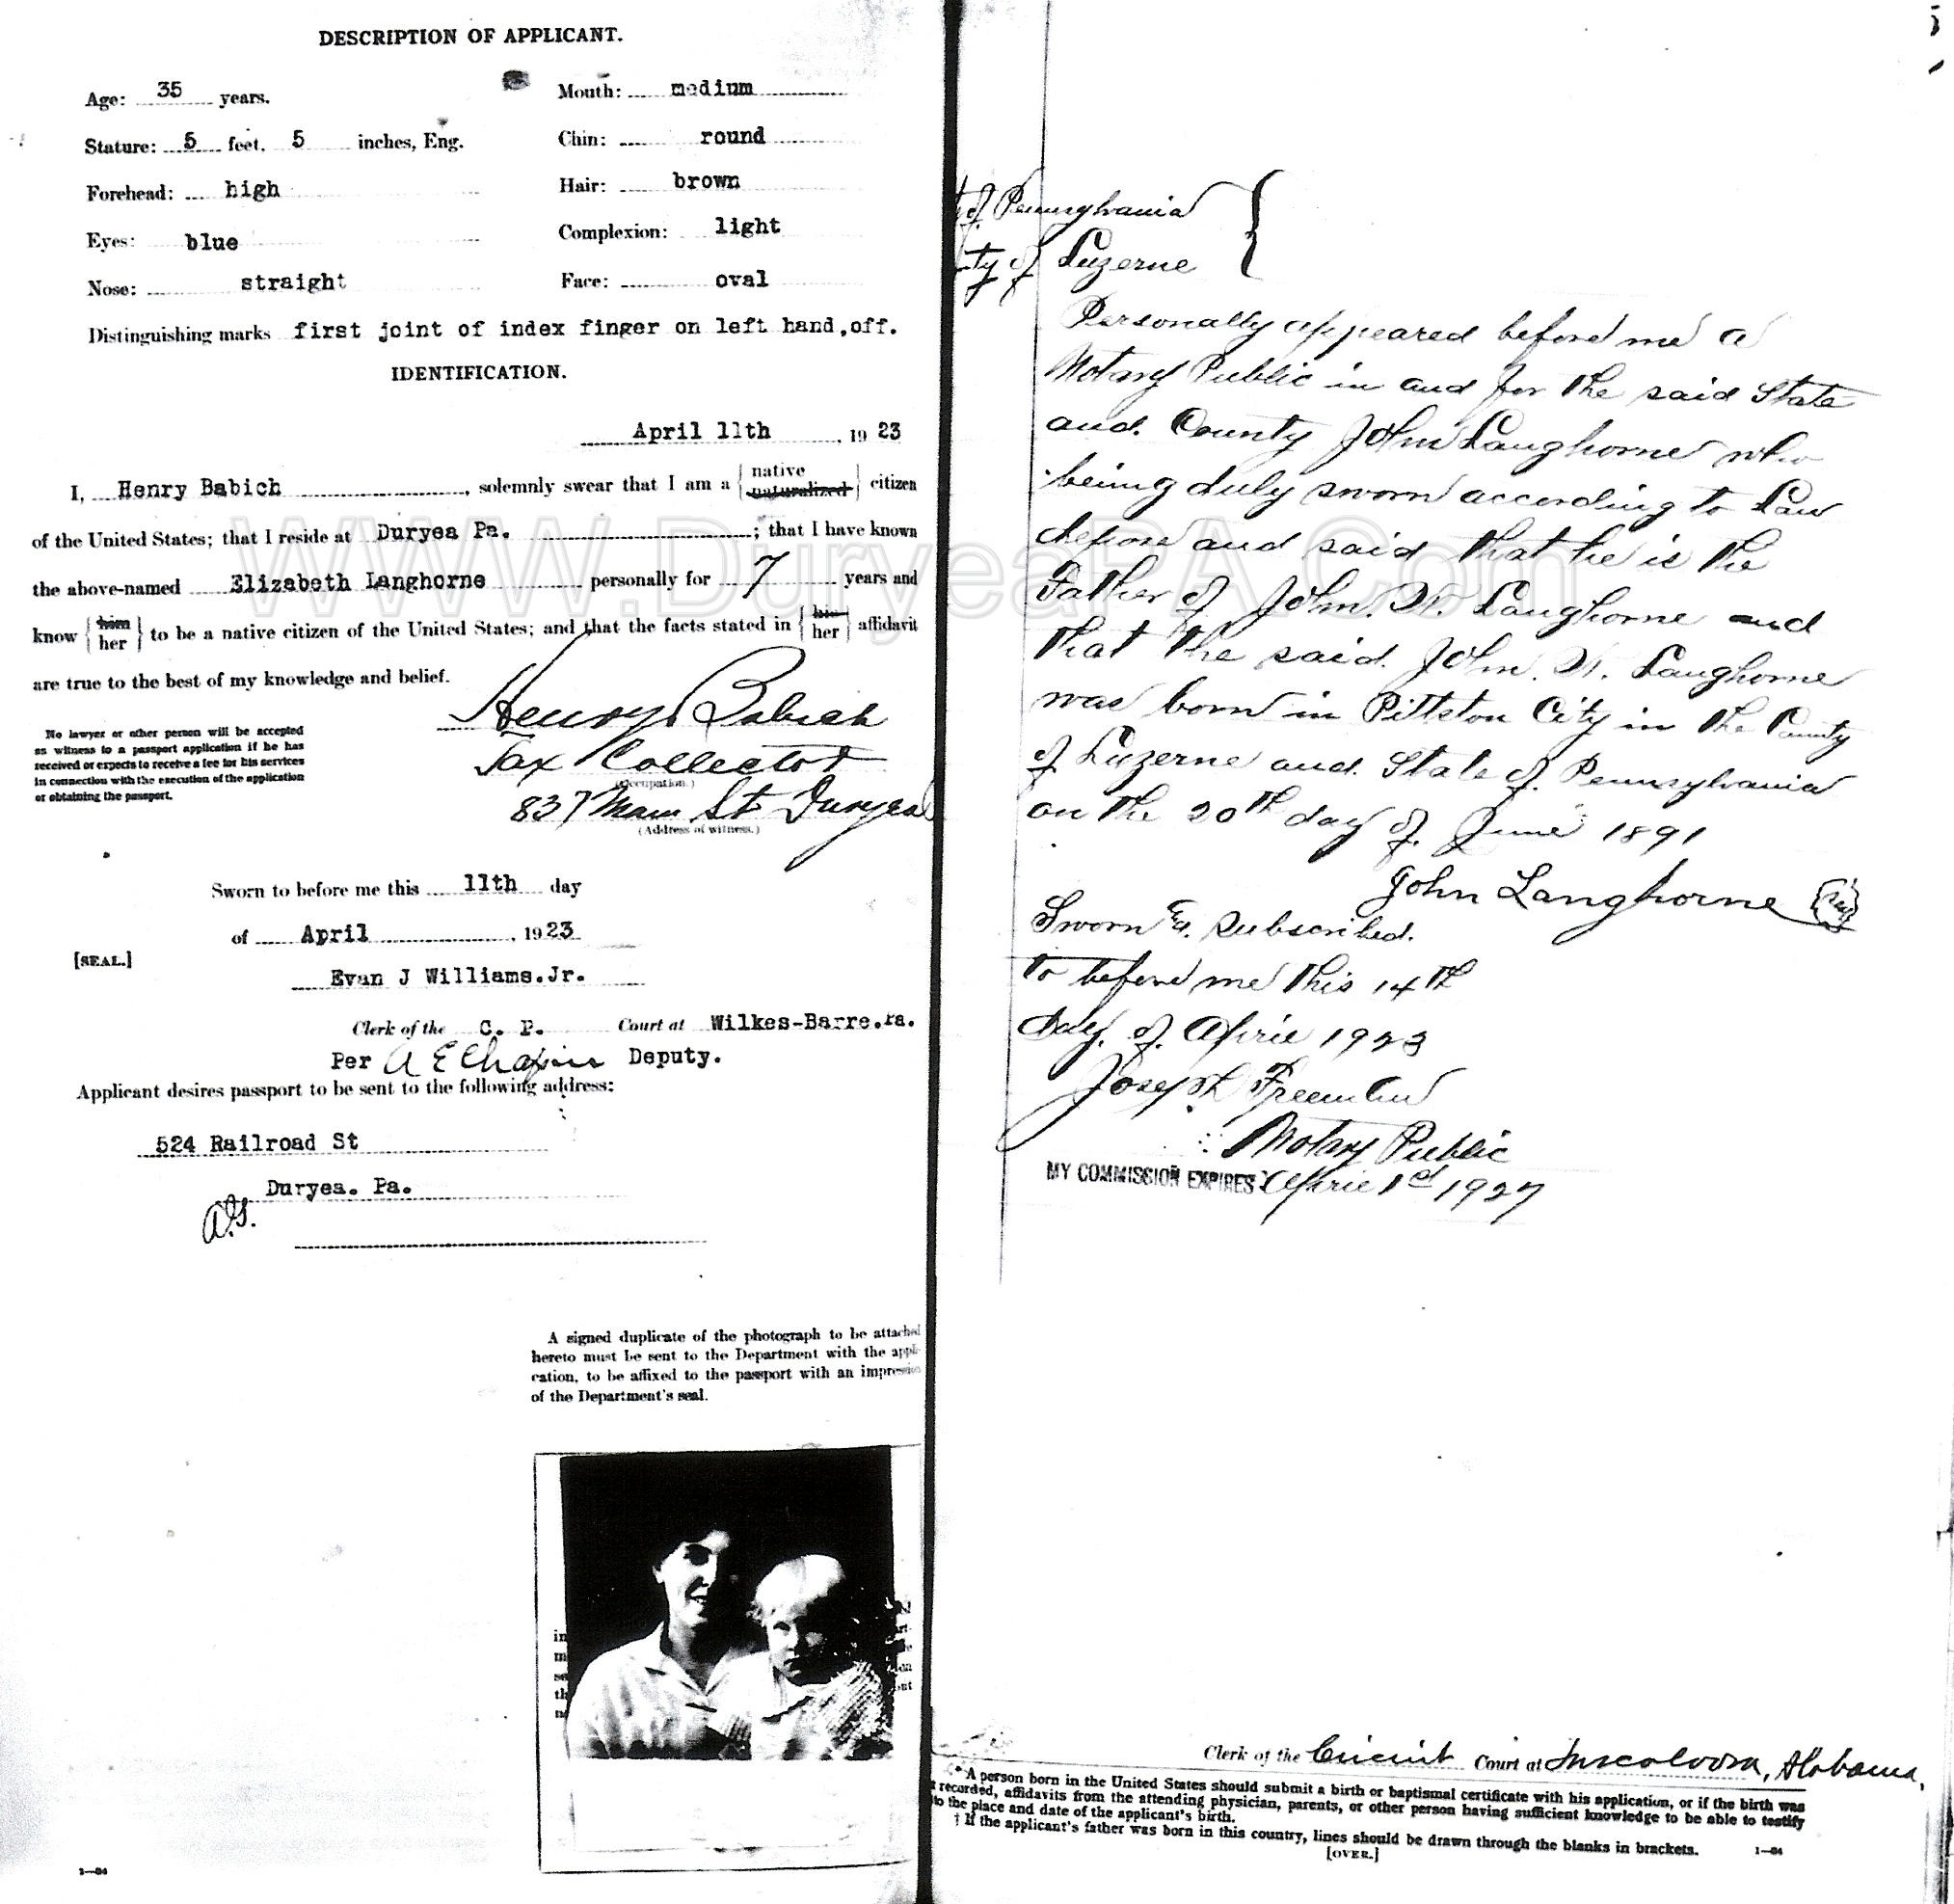 DESCRIPTION OF APPLICANT.
Age: 35 years.
Mouth: medium
Stature: 5 feet, 5 inches, Eng.
Chin: round
Forehead: high
Hair: brown
Eyes: blue
Complexion: light
Nose: straight
Face: oval
Distinguishing marks first joint of index finger on left hand, off.
IDENTIFICATION.
April 11th, 19 23
I, Henry Babich, solemnly swear that I am a { native naturalized } citizen
of the United States; that I reside at Duryea Pa. ; that I have known
the above-named Elizabeth Langhorne personally for 7 years and
know { him her } to be a native citizen of the United States; and that the facts stated in { his her } affidavit
are true to the best of my knowledge and belief.
Henry Babich
Tax Collector
(Occupation.)
837 Main St Duryea
(Address of witness.)
No lawyer or other person will be accepted
as witness to a passport application if he has
received or expects to receive a fee for his services
in connection with the execution of the application
or obtaining the passport.
Sworn to before me this 11th day
of April, 1923
[SEAL.]
Evan J Williams.Jr.
Clerk of the C. P. Court at Wilkes-Barre.Pa.
Per A E Chapin Deputy.
Applicant desires passport to be sent to the following address:
524 Railroad St
Duryea. Pa.
A signed duplicate of the photograph to be attached
hereto must be sent to the Department with the appli-
cation, to be affixed to the passport with an impression
of the Department's seal.
1—84
WWW.DuryeaPA.Com
of Pennsylvania
ty of Luzerne
Personally appeared before me a
Notary Public in and for the said State
and County John Langhorne who
being duly sworn according to Law
depose and said that he is the
Father of John. W. Langhorne and
that the said John. W. Langhorne
was born in Pittston City in the County
of Luzerne and State of Pennsylvania
on the 20th day of June 1891
John Langhorne
Sworn & Subscribed.
to before me this 14th
day of April 1923
Joseph Freeman
Notary Public
MY COMMISSION EXPIRES April 1st 1927
Clerk of the Circuit Court at Tuscaloosa, Alabama,
* A person born in the United States should submit a birth or baptismal certificate with his application, or if the birth was
t recorded, affidavits from the attending physician, parents, or other person having sufficient knowledge to be able to testify
to the place and date of the applicant's birth.
† If the applicant's father was born in this country, lines should be drawn through the blanks in brackets.
[OVER.]
1—84